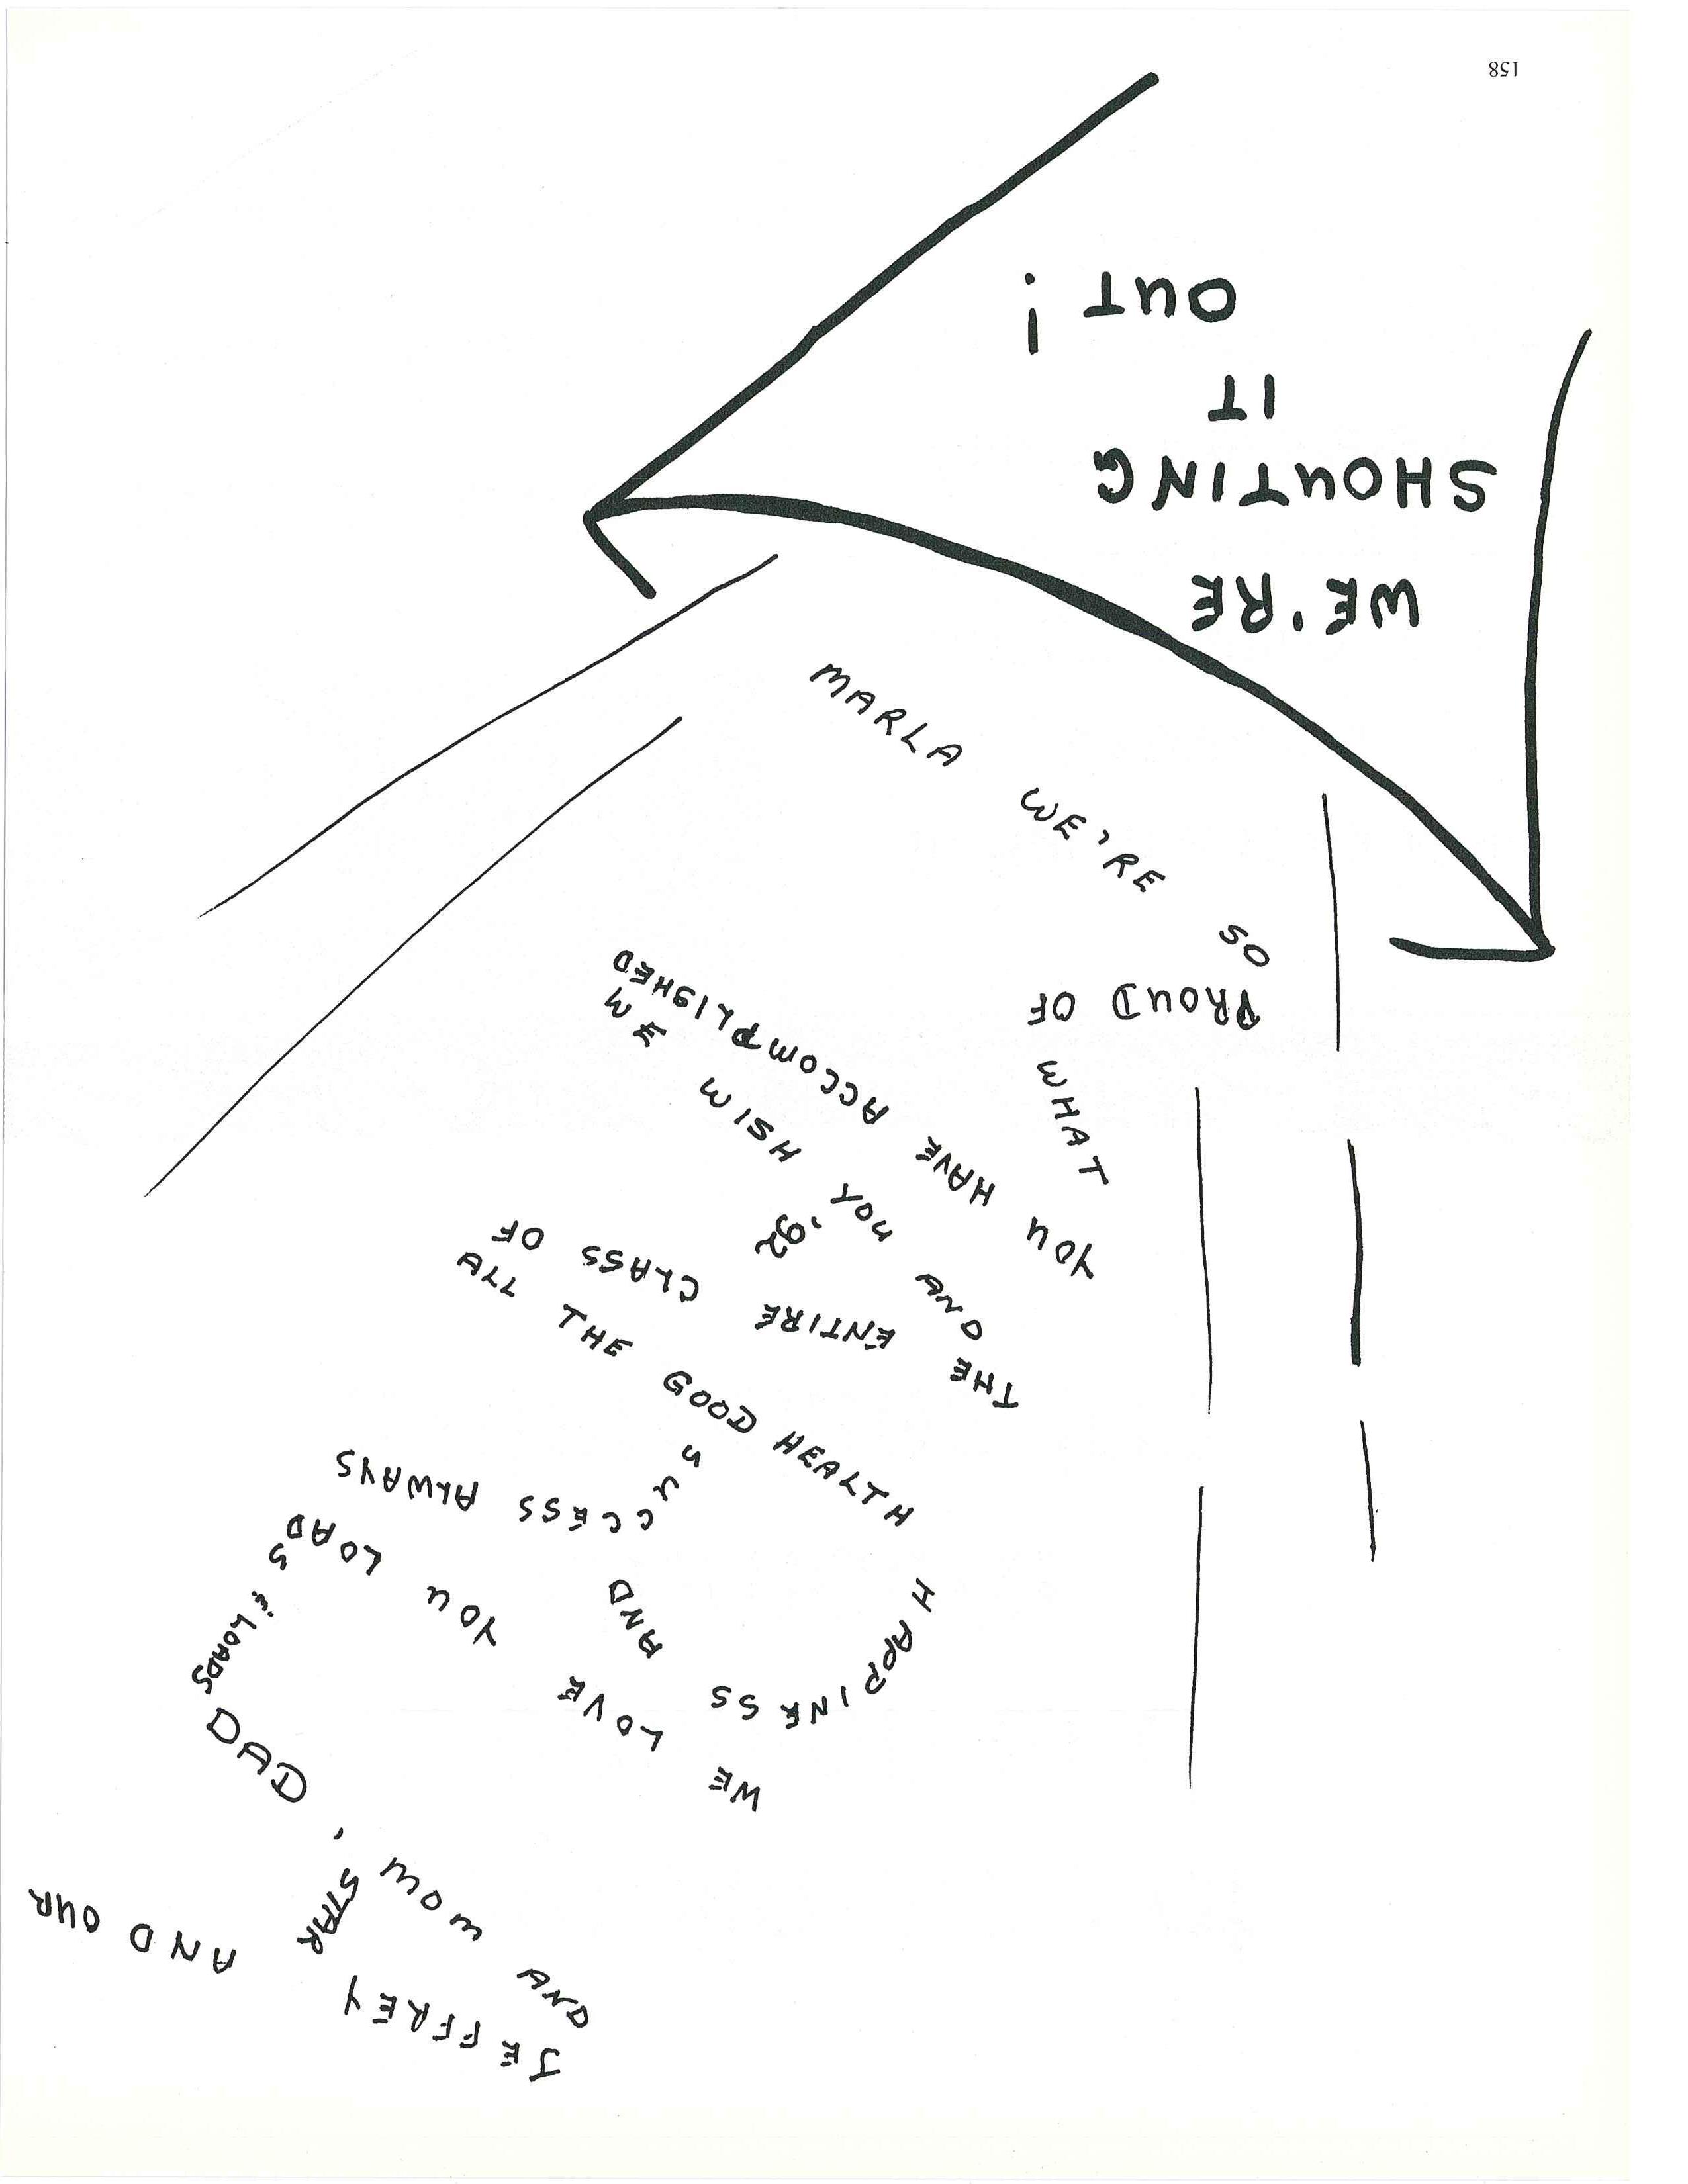 WE'RE
SHOUTING
IT
OUT!
MARLA WE'RE SO
PROUD OF
WHAT
YOU HAVE ACCOMPLISHED
WE WISH YOU AND
THE ENTIRE CLASS OF '92
ALL THE GOOD HEALTH
HAPPINESS AND
SUCCESS ALWAYS
WE LOVE YOU LOADS
& LOADS
DAD, MOM AND
JEFFREY AND OUR
STAR
158